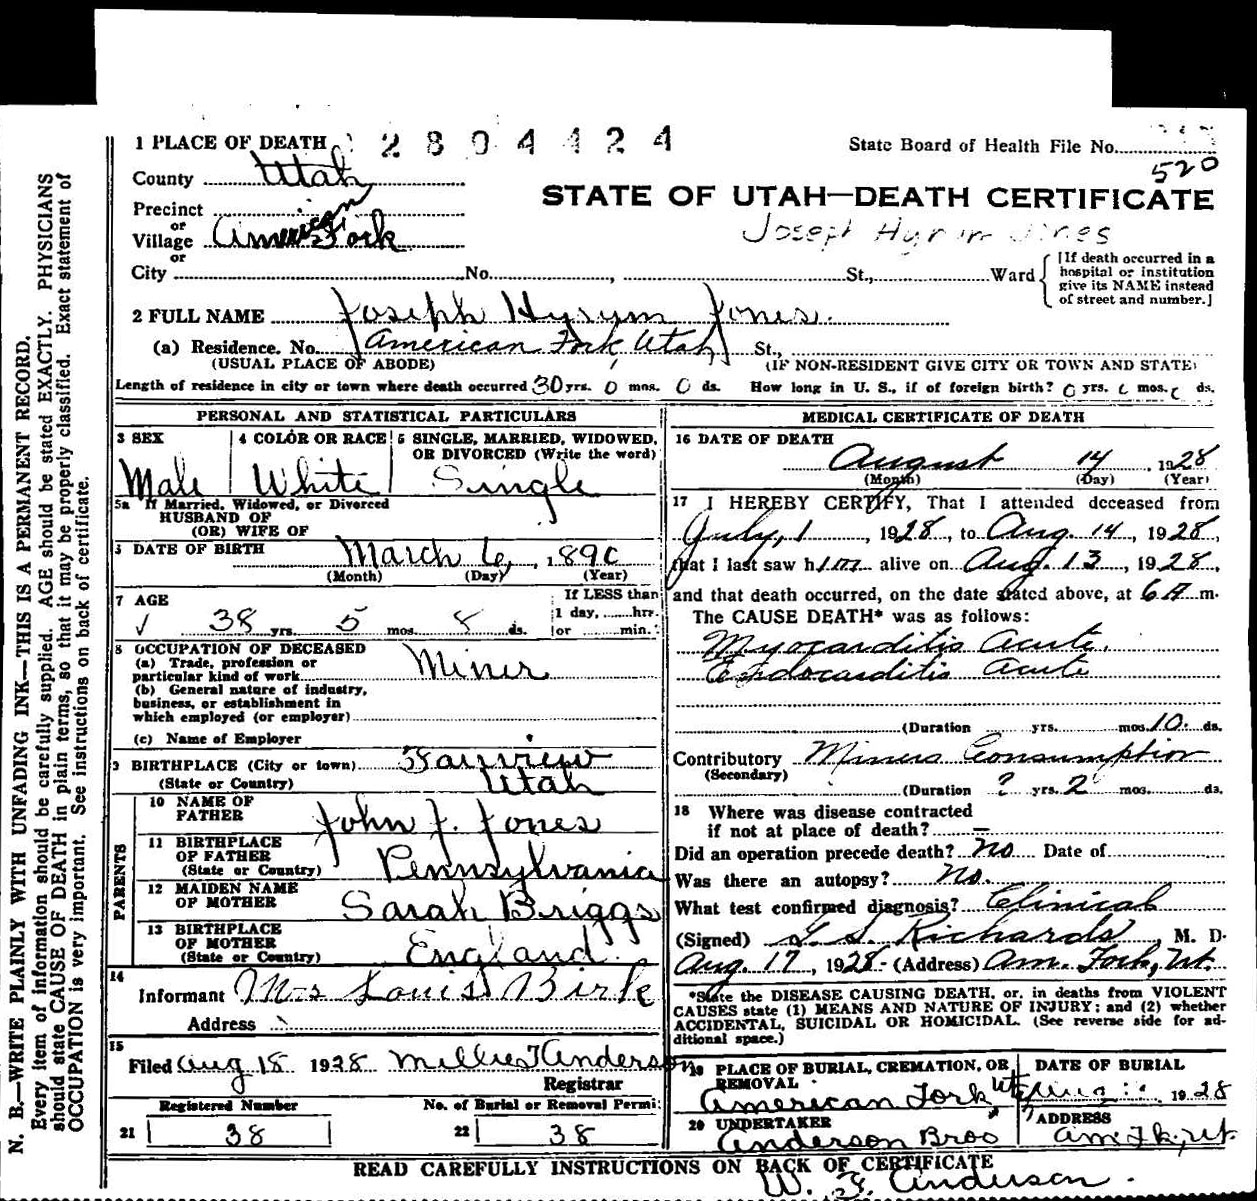 1 PLACE OF DEATH 2804424
State Board of Health File No.
520
County Utah
STATE OF UTAH—DEATH CERTIFICATE
Precinct
or
Village American Fork
or
Joseph Hyrum Jones
City No. , St., Ward
[If death occurred in a
hospital or institution
give its NAME instead
of street and number.]
2 FULL NAME Joseph Hyrum Jones.
(a) Residence. No. American Fork Utah St.,
(USUAL PLACE OF ABODE) (IF NON-RESIDENT GIVE CITY OR TOWN AND STATE)
Length of residence in city or town where death occurred 30 yrs. 0 mos. 0 ds. How long in U. S., if of foreign birth? 0 yrs. mos. ds.
PERSONAL AND STATISTICAL PARTICULARS
3 SEX
Male
4 COLOR OR RACE
White
5 SINGLE, MARRIED, WIDOWED,
OR DIVORCED (Write the word)
Single
5a If Married, Widowed, or Divorced
HUSBAND OF
(OR) WIFE OF
DATE OF BIRTH March 6, 1890
(Month) (Day) (Year)
7 AGE
38 yrs. 5 mos. 8 ds.
If LESS than
1 day, hrs.
or min.
8 OCCUPATION OF DECEASED
(a) Trade, profession or
particular kind of work Miner
(b) General nature of industry,
business, or establishment in
which employed (or employer)
(c) Name of Employer
9 BIRTHPLACE (City or town) Fairview
(State or Country) Utah
PARENTS
10 NAME OF
FATHER John J. Jones
11 BIRTHPLACE
OF FATHER
(State or Country) Pennsylvania
12 MAIDEN NAME
OF MOTHER Sarah Briggs
13 BIRTHPLACE
OF MOTHER
(State or Country) England.
14
Informant Mrs Louis Birk
Address
15
Filed Aug 18 1928 Millie Anderson
Registrar
Registered Number No. of Burial or Removal Permit
21 38 22 38
MEDICAL CERTIFICATE OF DEATH
16 DATE OF DEATH
August 14, 1928
(Month) (Day) (Year)
17 I HEREBY CERTIFY, That I attended deceased from
July, 1, 1928, to Aug. 14, 1928,
that I last saw him alive on Aug. 13, 1928,
and that death occurred, on the date stated above, at 6 A m.
The CAUSE DEATH* was as follows:
Myocarditis Acute.
Endocarditis Acute
(Duration yrs. mos. 10. ds.
Contributory Miners Consumption
(Secondary)
(Duration ? yrs. 2 mos. ds.
18 Where was disease contracted
if not at place of death? —
Did an operation precede death? No Date of
Was there an autopsy? No.
What test confirmed diagnosis? Clinical
(Signed) G. S. Richards, M. D.
Aug. 17, 1928- (Address) Am. Fork, Ut.
*State the DISEASE CAUSING DEATH, or, in deaths from VIOLENT
CAUSES state (1) MEANS AND NATURE OF INJURY; and (2) whether
ACCIDENTAL, SUICIDAL OR HOMICIDAL. (See reverse side for ad-
ditional space.)
19 PLACE OF BURIAL, CREMATION, OR
REMOVAL
American Fork Ut
DATE OF BURIAL
Aug 1928
20 UNDERTAKER
Anderson Bros
ADDRESS
Am Fk, Ut.
READ CAREFULLY INSTRUCTIONS ON BACK OF CERTIFICATE
W. Anderson.
N. B.—WRITE PLAINLY WITH UNFADING INK—THIS IS A PERMANENT RECORD.
Every item of information should be carefully supplied. AGE should be stated EXACTLY. PHYSICIANS
should state CAUSE OF DEATH in plain terms, so that it may be properly classified. Exact statement of
OCCUPATION is very important. See instructions on back of certificate.